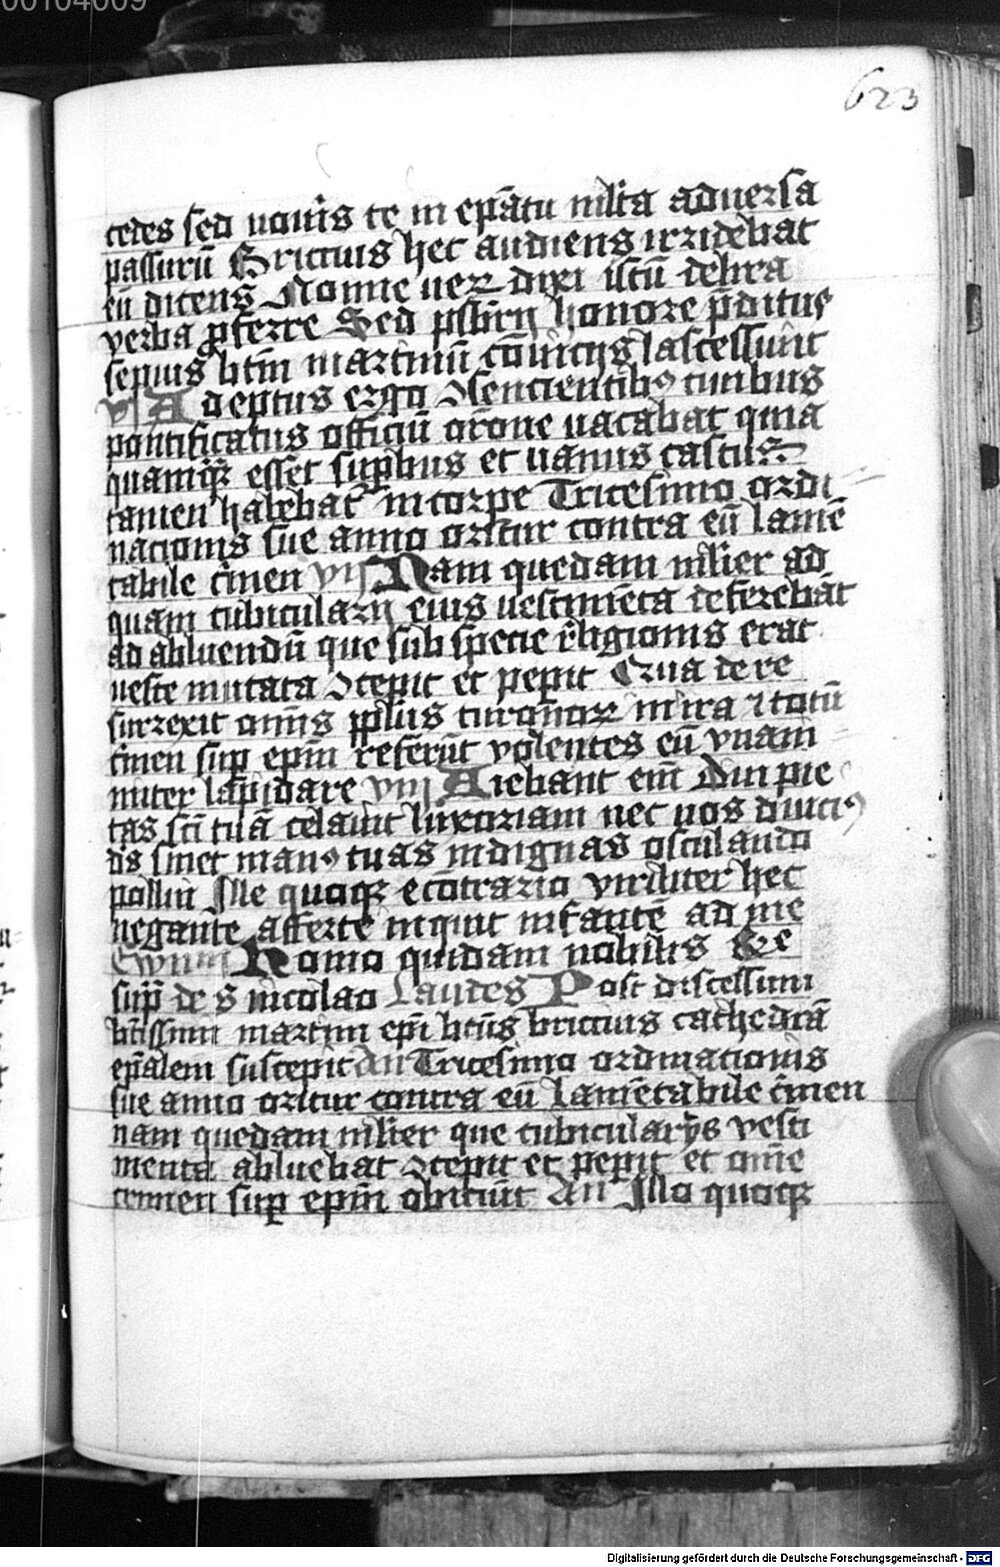 00104009
623
cedes sed noueris te in ep̄atu ml̄ta aduersa
passurū Briccius hec audiens irridebat
eū dicens Nonne uerū dixi istū delira
verba ꝓferre Sed p̄sbrij honore p̄ditus
sepius btm̄ martinū cōuicijs lascessiuit
vi Adeptus ergo ꝯsencientibꝫ ciuibus
pontificatus officiū or̄one uacabat quia
quamqꝫ esset suꝑbus et uanus castus
tamen habebat̉ in corpe Tricesimo ordi
nacionis sue anno oritur contra eū lamē
tabile c̄men vij Nam quedam ml̄ier ad
quam cubicularij eius uestimēta deferebāt
ad abluendū que sub specie r̄ligionis erat
ueste mutata ꝯcepit et peperit Qua de re
surrexit om̄is pp̄lus turonorꝝ in ira ⁊ totū
c̄men suꝑ epm̄ referūt volentes eū vnani
miter lapidare viij Aiebant em̄ Diu pie
tas sc̄i tuā celauit luxuriam nec nos diuciꝰ
ds̄ sinet manꝰ tuas indignas osculando
pollui Ille quoqꝫ econtrario viriliter hec
negante afferte inquit infantē ad me
Ewm Homo quidam nobilis &c
suꝑ de s nicolao Laudes Post discessum
btissimi martini ep̄i btūs briccius cathedrā
ep̄alem suscepit An Tricesimo ordinationis
sue anno oritur contra eū lamētabile c̄men
nam quedam ml̄ier que cubicularijs vesti
menta abluebat ꝯcepit et peperit et om̄e
crimen suꝑ epm̄ obiciūt An Illo quoqꝫ
Digitalisierung gefördert durch die Deutsche Forschungsgemeinschaft - DFG